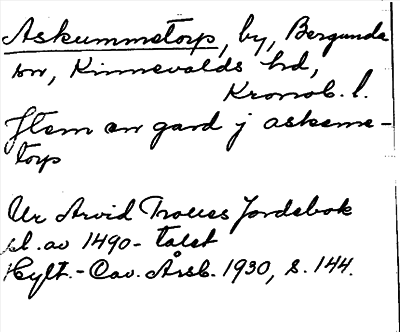 Askummetorp, by, Bergunda
sn, Kinnevalds hd,
Kronob. l.
Jtem en gard j askeme-
torp
Ur Arvid Trolles Jordebok
sl. av 1490-talet
Hylt.-Cav. Årsb. 1930, s. 144.